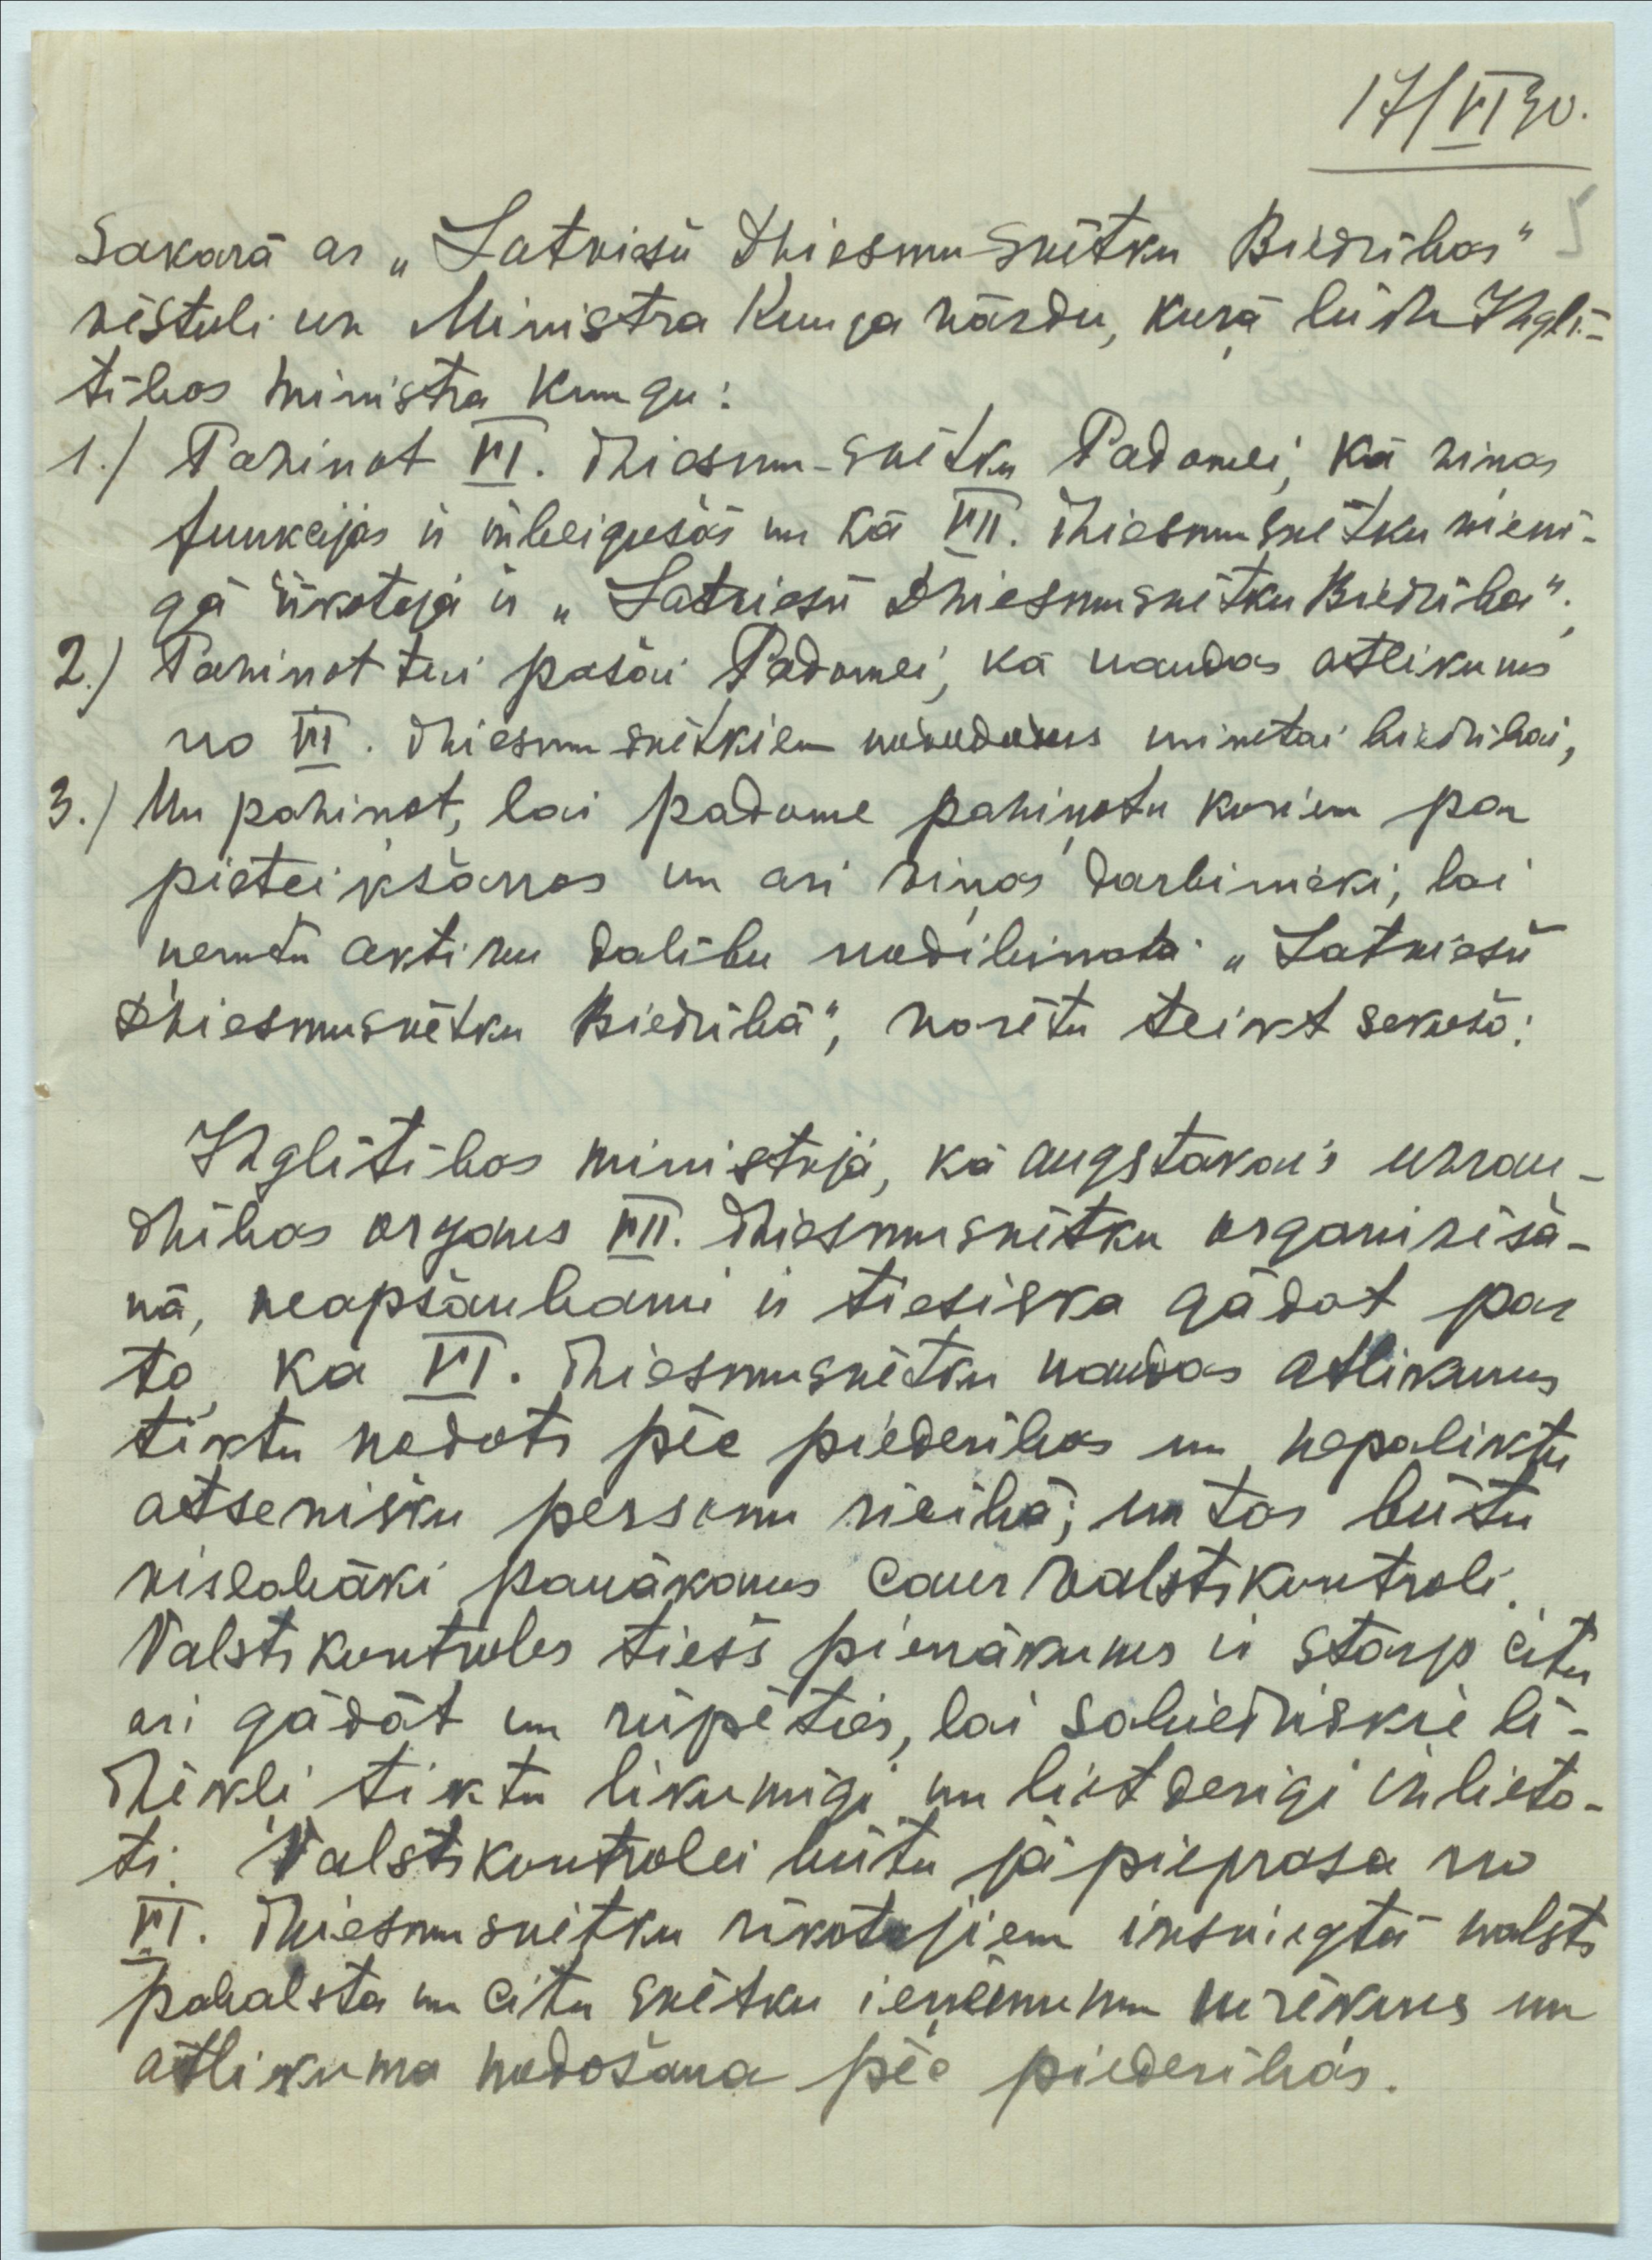 17/VI 30.
Sakarā ar „Latviešu Dziesmu svētku Biedrības"
vēstuli uz Ministra Kunga vārdu, kurā lūdz Izglī-
tības ministra kungu:
1.) Paziņot VI. dziesmu-svētku Padomei, ka viņas
funkcijas ir izbeigušās un ka VII. dziesmusvētku vienī-
gā rīkotāja ir „Latviešu Dziesmusvētku Biedrība";
2.) Paziņot tai pašai Padomei, ka naudas atlikums
no VI. dziesmu svētkiem nododams minētai biedrībai,
3.) Un paziņot, lai padome paziņotu koriem par
pieteikšanos un arī viņas darbinieki, lai
ņemtu aktīvu dalību nodibinātā „Latviešu
Dziesmusvētku Biedrībā", varētu teikt sekošo:
Izglītības ministrijā, kā augstākais uzrau-
dzības organs VII. dziesmusvētku organizēšā-
nā, neapšaubāmi ir tiesiska gādāt par
to, ka VI. dziesmusvētku naudas atlikums
tiktu nodots pēc piederības un nepaliktu
atsevišķu personu rīcībā; un tas būtu
vislabāki panākams caur valstskontroli.
Valstskontroles tiešs pienākums ir starp citu
arī gādāt un rūpēties, lai sabiedriskie lī-
dzekļi tiktu likumīgi un lietderīgi izlieto-
ti. Valstskontrolei būtu jāpieprasa no
VI. dziesmu svētku rīkotājiem izsniegtā valsts
pabalsta un citu svētku ieņēmumu norēķins un
atlikuma nodošana pēc piederības.